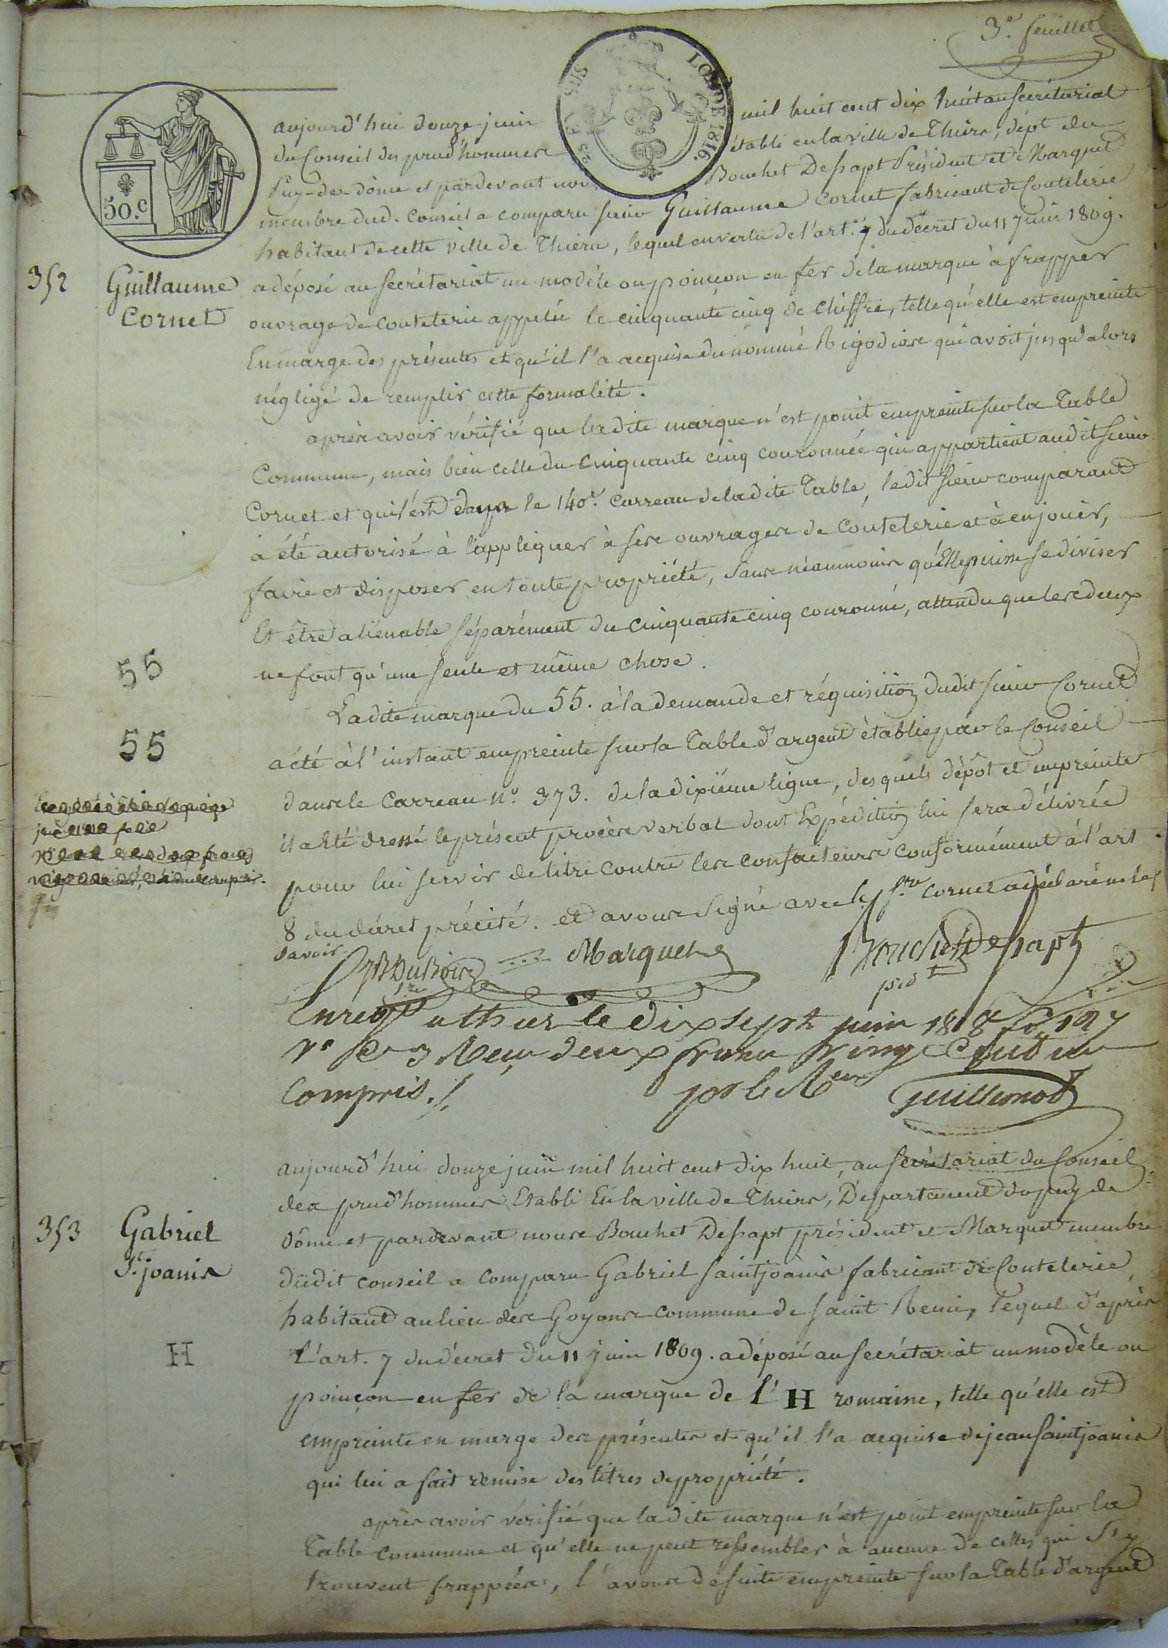 3e. feuillet
LOI DE 1816.
50.c
aujourd'hui douze juin mil huit cent dix huit au secrétariat
du Conseil des prud'hommes établi en la ville de Thiers, dépt. du
Puy-de-dôme et pardevant nous Bouchet Dessapt Président et Marquet
membre dud. Conseil a comparu sieur Guillaume Cornet fabricant de Coutelerie
habitant de cette ville de Thiers, lequel en vertu de l'art. 7 du décret du 11 Juin 1809.
352
Guillaume
Cornet
a déposé au secrétariat un modèle ou poinçon en fer de la marque à frapper
ouvrage de coutelerie appelée le cinquante cinq de chiffre, telle qu'elle est empreinte
En marge des présentes et qu'il l'a acquise du nommé Rigodias qui avoit jusqu'alors
négligé de remplir cette formalité.
après avoir vérifié que ladite marque n'est point empreinte sur la Table
Commune, mais bien celle du Cinquante cinq couronnée qui appartient audit sieur
Cornet et qui est dans le 140e. Carreau de ladite Table, ledit sieur comparant
a été autorisé à l'appliquer à ses ouvrages de Coutelerie et à en jouir,
faire et disposer en toute propriété, sans néanmoins qu'Elle puisse se diviser
Et être aliénable séparément du cinquante cinq couronné, attendu que les deux
ne font qu'une seule et même chose.
55
55
Ladite marque du 55. à la demande et réquisition dudit sieur Cornet
a été à l'instant empreinte sur la Table d'argent établie par le Conseil
dans le Carreau No. 373. de la dixième ligne, desquels dépôt et empreinte
il a été dressé le présent procès verbal dont Expédition lui sera délivrée
pour lui servir de titre contre les contrefacteurs conformément à l'art.
8 du décret précité. et avons signé avec le sre Cornet a déclaré ne le
savoir
Marquet
Bouchet Dessapt
psdt
Enregé. a thiers le dix sept juin 1818 fo. 127
Vo Ce 3 Reçu deux francs vingt Centimes
Compris.
Guillemot
353
Gabriel
St. joanis
aujourd'hui douze juin mil huit cent dix huit, au secrétariat du Conseil
des prud'hommes Etabli En la ville de Thiers, Département du puy de
dôme et pardevant nous Bouchet Dessapt président et Marquet membre
dudit conseil a Comparu Gabriel saintjoanis fabricant de Coutelerie,
habitant au lieu des Goyons commune de saint Remi, lequel d'après
H
L'art. 7 du décret du 11 juin 1809. a déposé au secrétariat un modèle ou
poinçon en fer de la marque de l'H romaine, telle qu'elle est
empreinte en marge des présentes et qu'il l'a acquise de jean saintjoanis
qui lui a fait remise des titres de propriété.
après avoir vérifié que ladite marque n'est point empreinte sur la
Table commune et qu'elle ne peut ressembler à aucune de celles qui s'y
trouvent frappées, l'avons de suite empreinte sur la Table d'argent